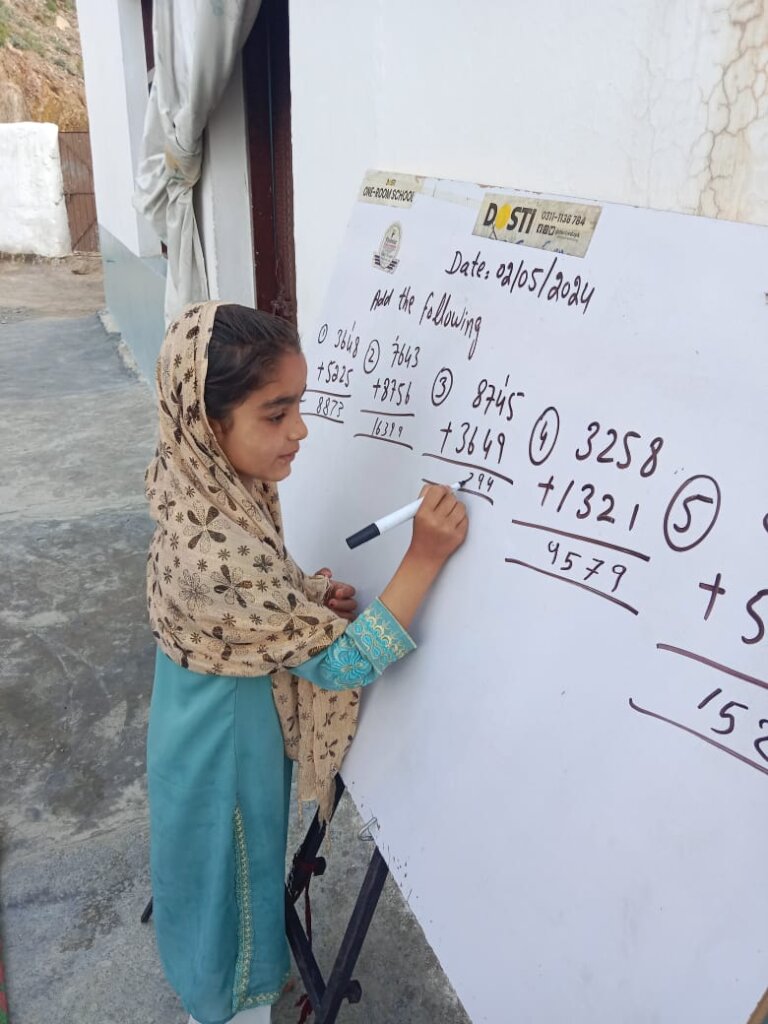 ONE-ROOM SCHOOL
DOSTI 0311-1138 784
Date: 02/05/2024
Add the following
① 3648
+5225
8873
② 7643
+8756
16399
③ 8745
+3649
394
④ 3258
+1321
4579
⑤
+5
152